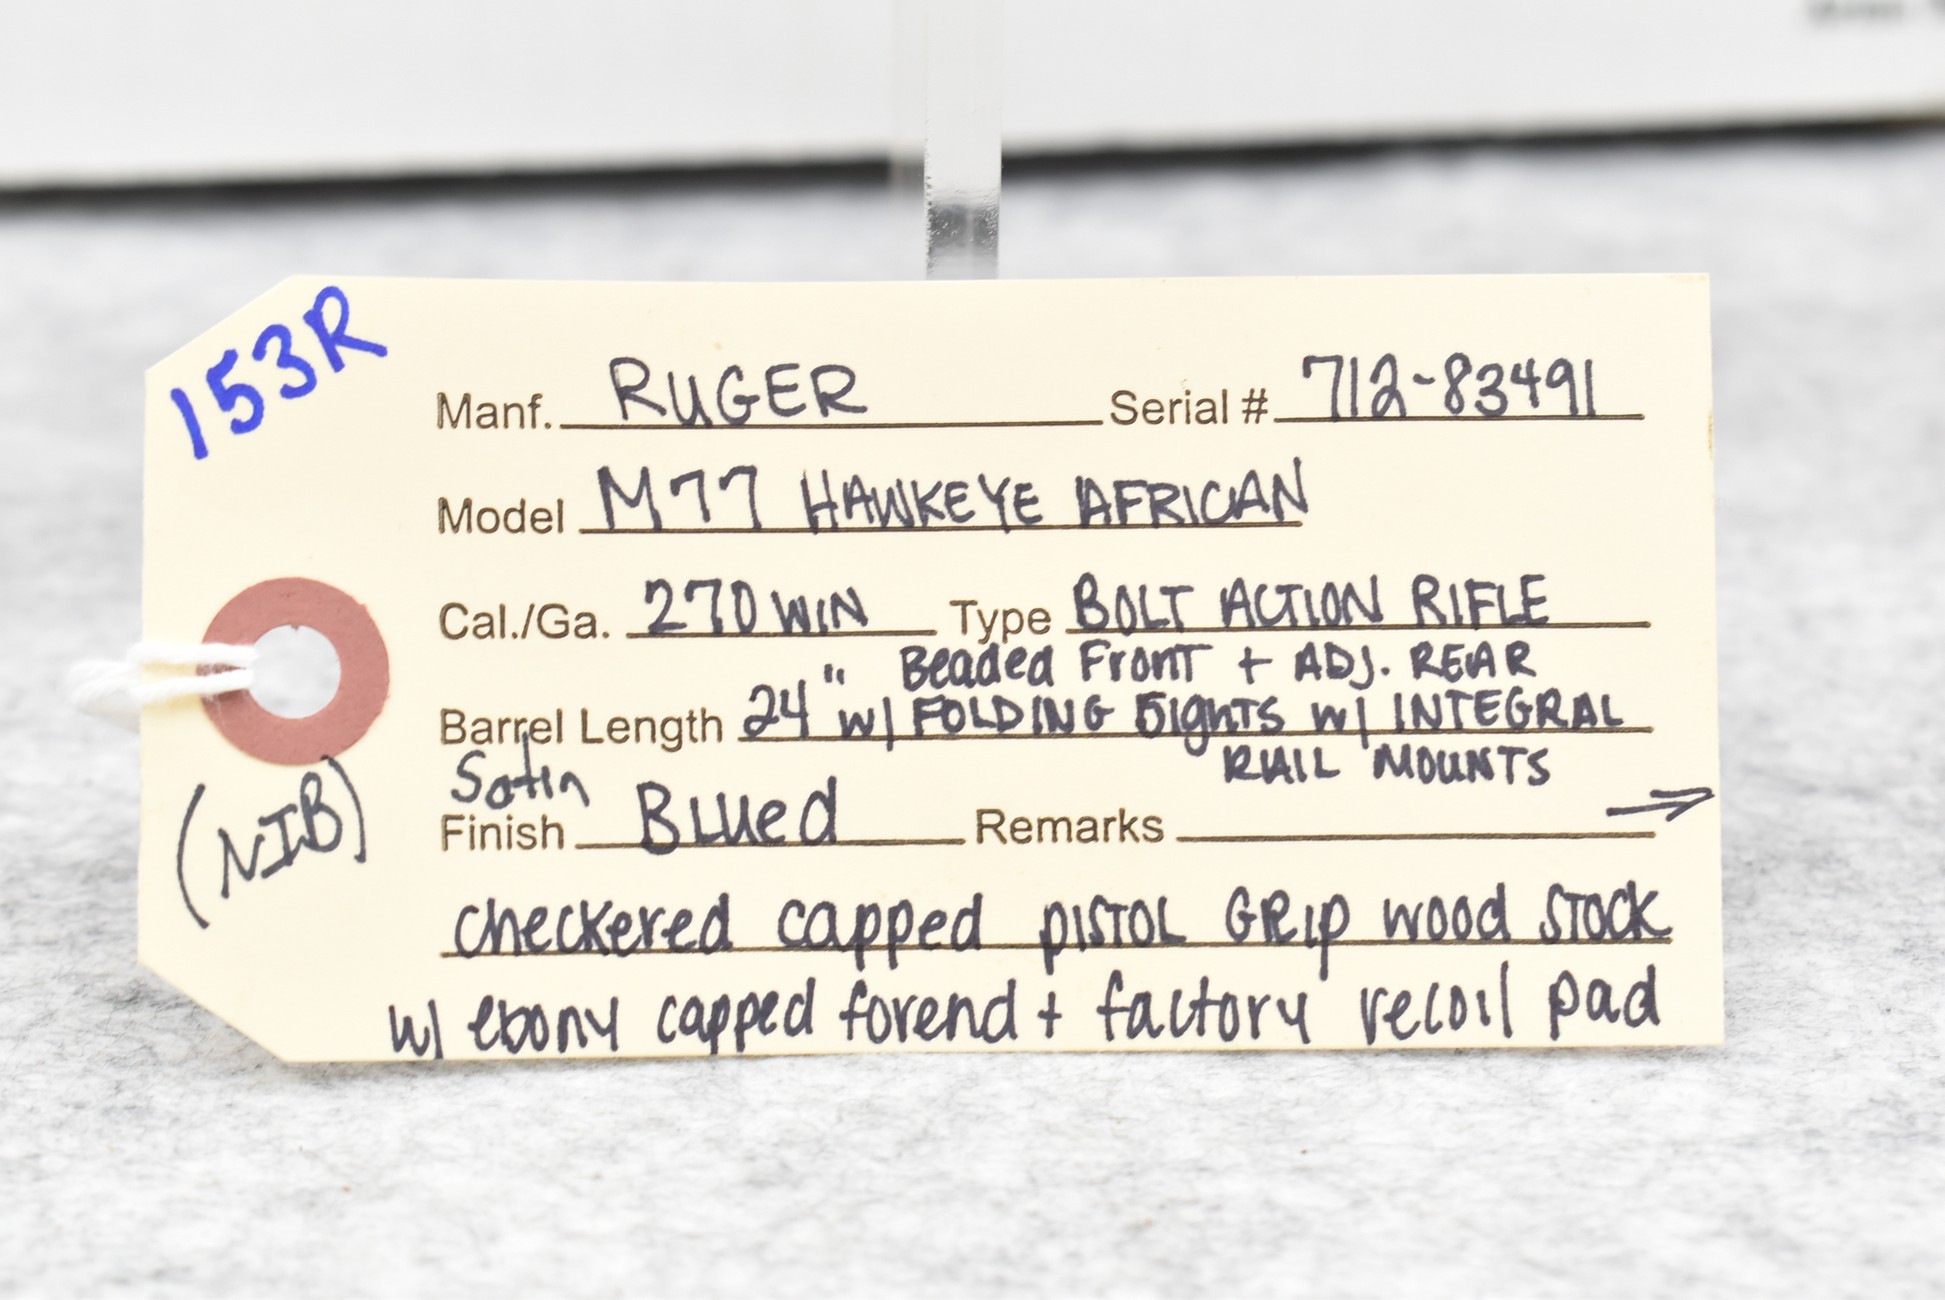 153R
Manf. RUGER Serial # 712-83491
Model M77 HAWKEYE AFRICAN
Cal./Ga. 270 WIN Type BOLT ACTION RIFLE
Beaded Front + ADJ. REAR
Barrel Length 24" w/ FOLDING SIGHTS w/ INTEGRAL
RAIL MOUNTS
Satin
Finish Blued Remarks →
(NIB)
checkered capped PISTOL GRIP wood STOCK
w/ ebony capped forend + factory recoil pad